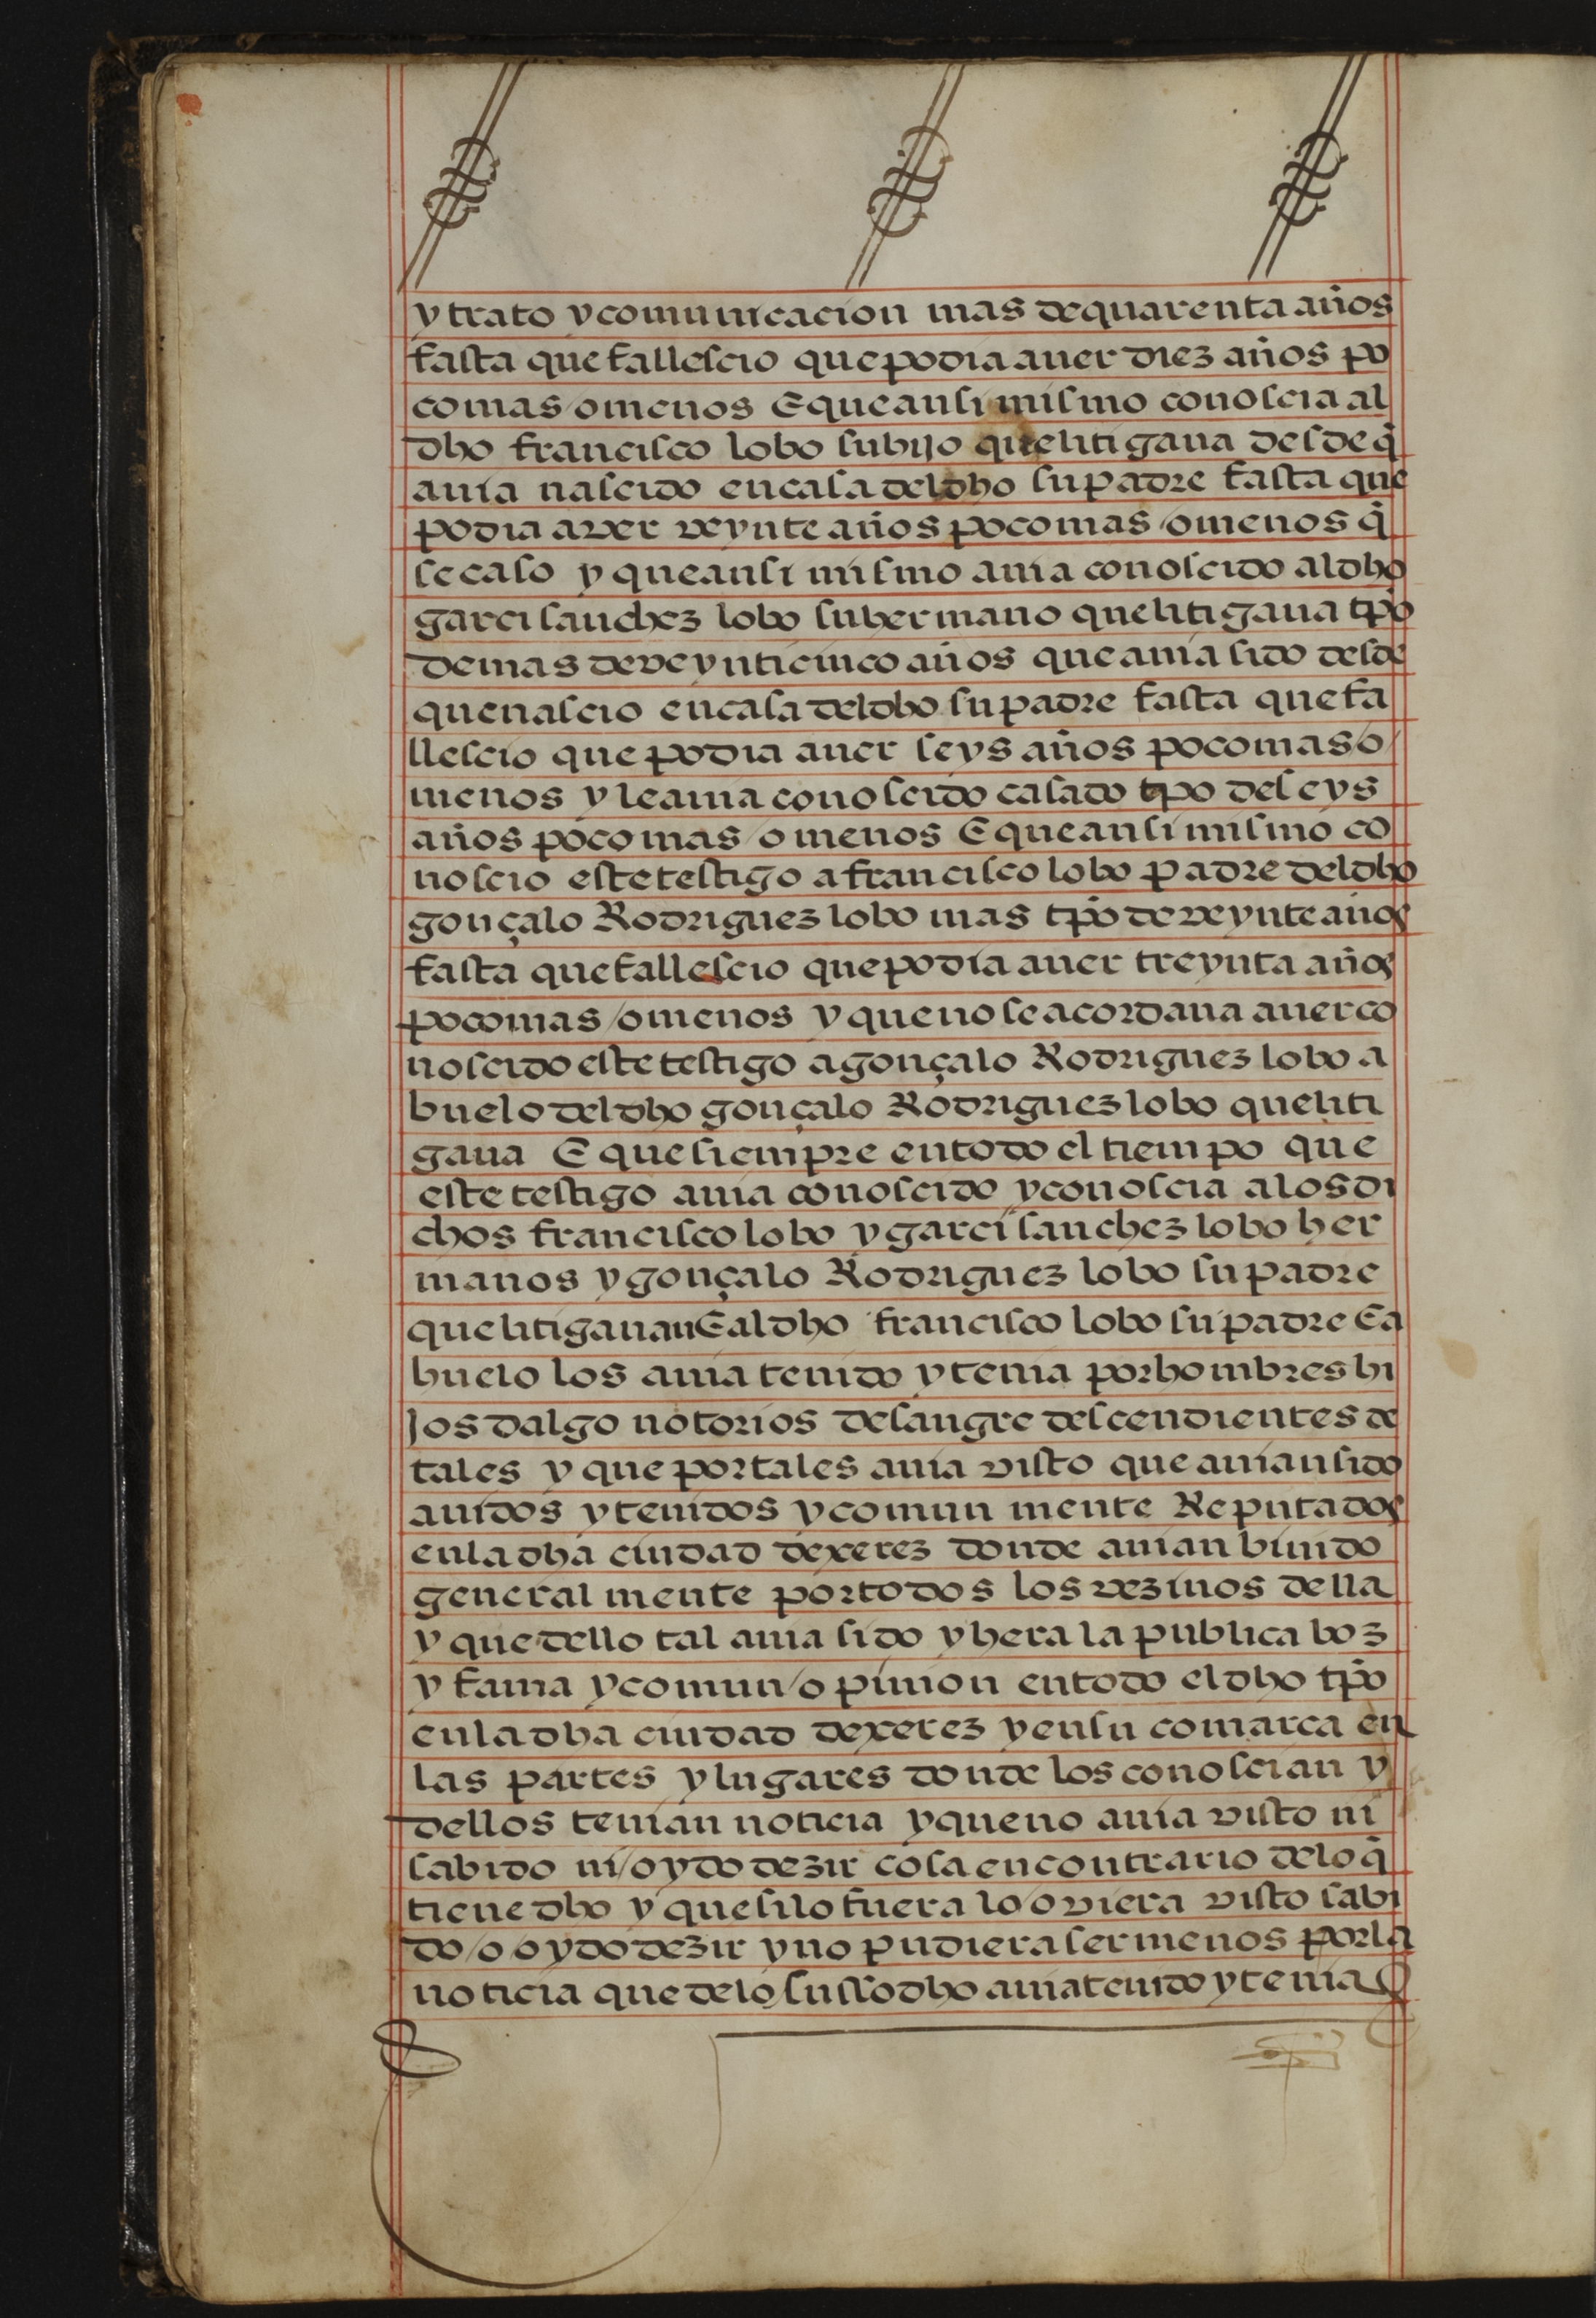 y trato y comunicacion mas de quarenta años
fasta que fallescio que podia auer diez años po
co mas / o menos E que ansi mismo conoscia al
dho francisco lobo su hijo que litigaua desde q̃
auia nascido en casa del dho su padre fasta que
podia aver veynte años poco mas / o menos q̃
se caso y que ansi mismo auia conoscido al dho
garci sanchez lobo su hermano que litigaua tpõ
de mas de veynti cinco años que auia sido desde
que nascio en casa del dho su padre fasta que fa
llescio que podia auer seys años poco mas / o /
menos y le auia conoscido casado tpo de seys
años poco mas / o menos E que ansi mismo co
noscio este testigo a francisco lobo padre del dho
gonçalo Rodriguez lobo mas tpõ de veynte años
fasta que fallescio que podia auer treynta años
poco mas / o menos y que no se acordaua auer co
noscido este testigo a gonçalo Rodriguez lobo a
buelo del dho gonçalo Rodriguez lobo que liti
gaua E que siempre en todo el tiempo que
este testigo auia conoscido y conoscia a los di
chos francisco lobo y garci sanchez lobo her
manos y gonçalo Rodriguez lobo su padre
que litigauan E al dho francisco lobo su padre E a
buelo los auia tenido y tenia por hombres hi
jos dalgo notorios de sangre descendientes de
tales y que por tales auia visto que auian sido
auidos y tenidos y comun mente Reputados
en la dha ciudad de xerez donde auian biuido
general mente por todos los vezinos della
y que dello tal auia sido y hera la publica boz
y fama y comun / o pinion en todo el dho tpõ
en la dha ciudad de xerez y en su comarca en
las partes y lugares donde los conoscian y
dellos tenian noticia y que no auia visto ni
sabido ni / oydo dezir cosa en contrario de lo q̃
tiene dho y que si lo fuera lo oviera visto sabi
do / o oydo dezir y no pudiera ser menos por la
noticia que de lo susso dho auia tenido y tenia